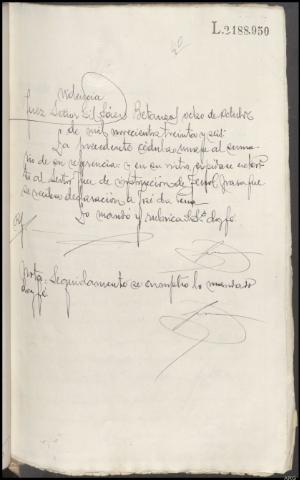 L.2188.950
Providencia
Juez Señor Gil Sáez Betanzos ocho de Octubre
de mil novecientos treinta y seis
La precedente cédula únase al suma
rio de su referencia y en su vista, expídase exhor
to al Señor Juez de instrucción de Ferrol para que
se reciba declaración a
Lo mandó y rubrica S.Sª doy fe
Nota: Seguidamente se cumplió lo mandado
doy fé